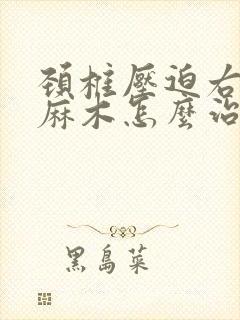 頸椎壓迫右
麻木怎麼治
黑島菜